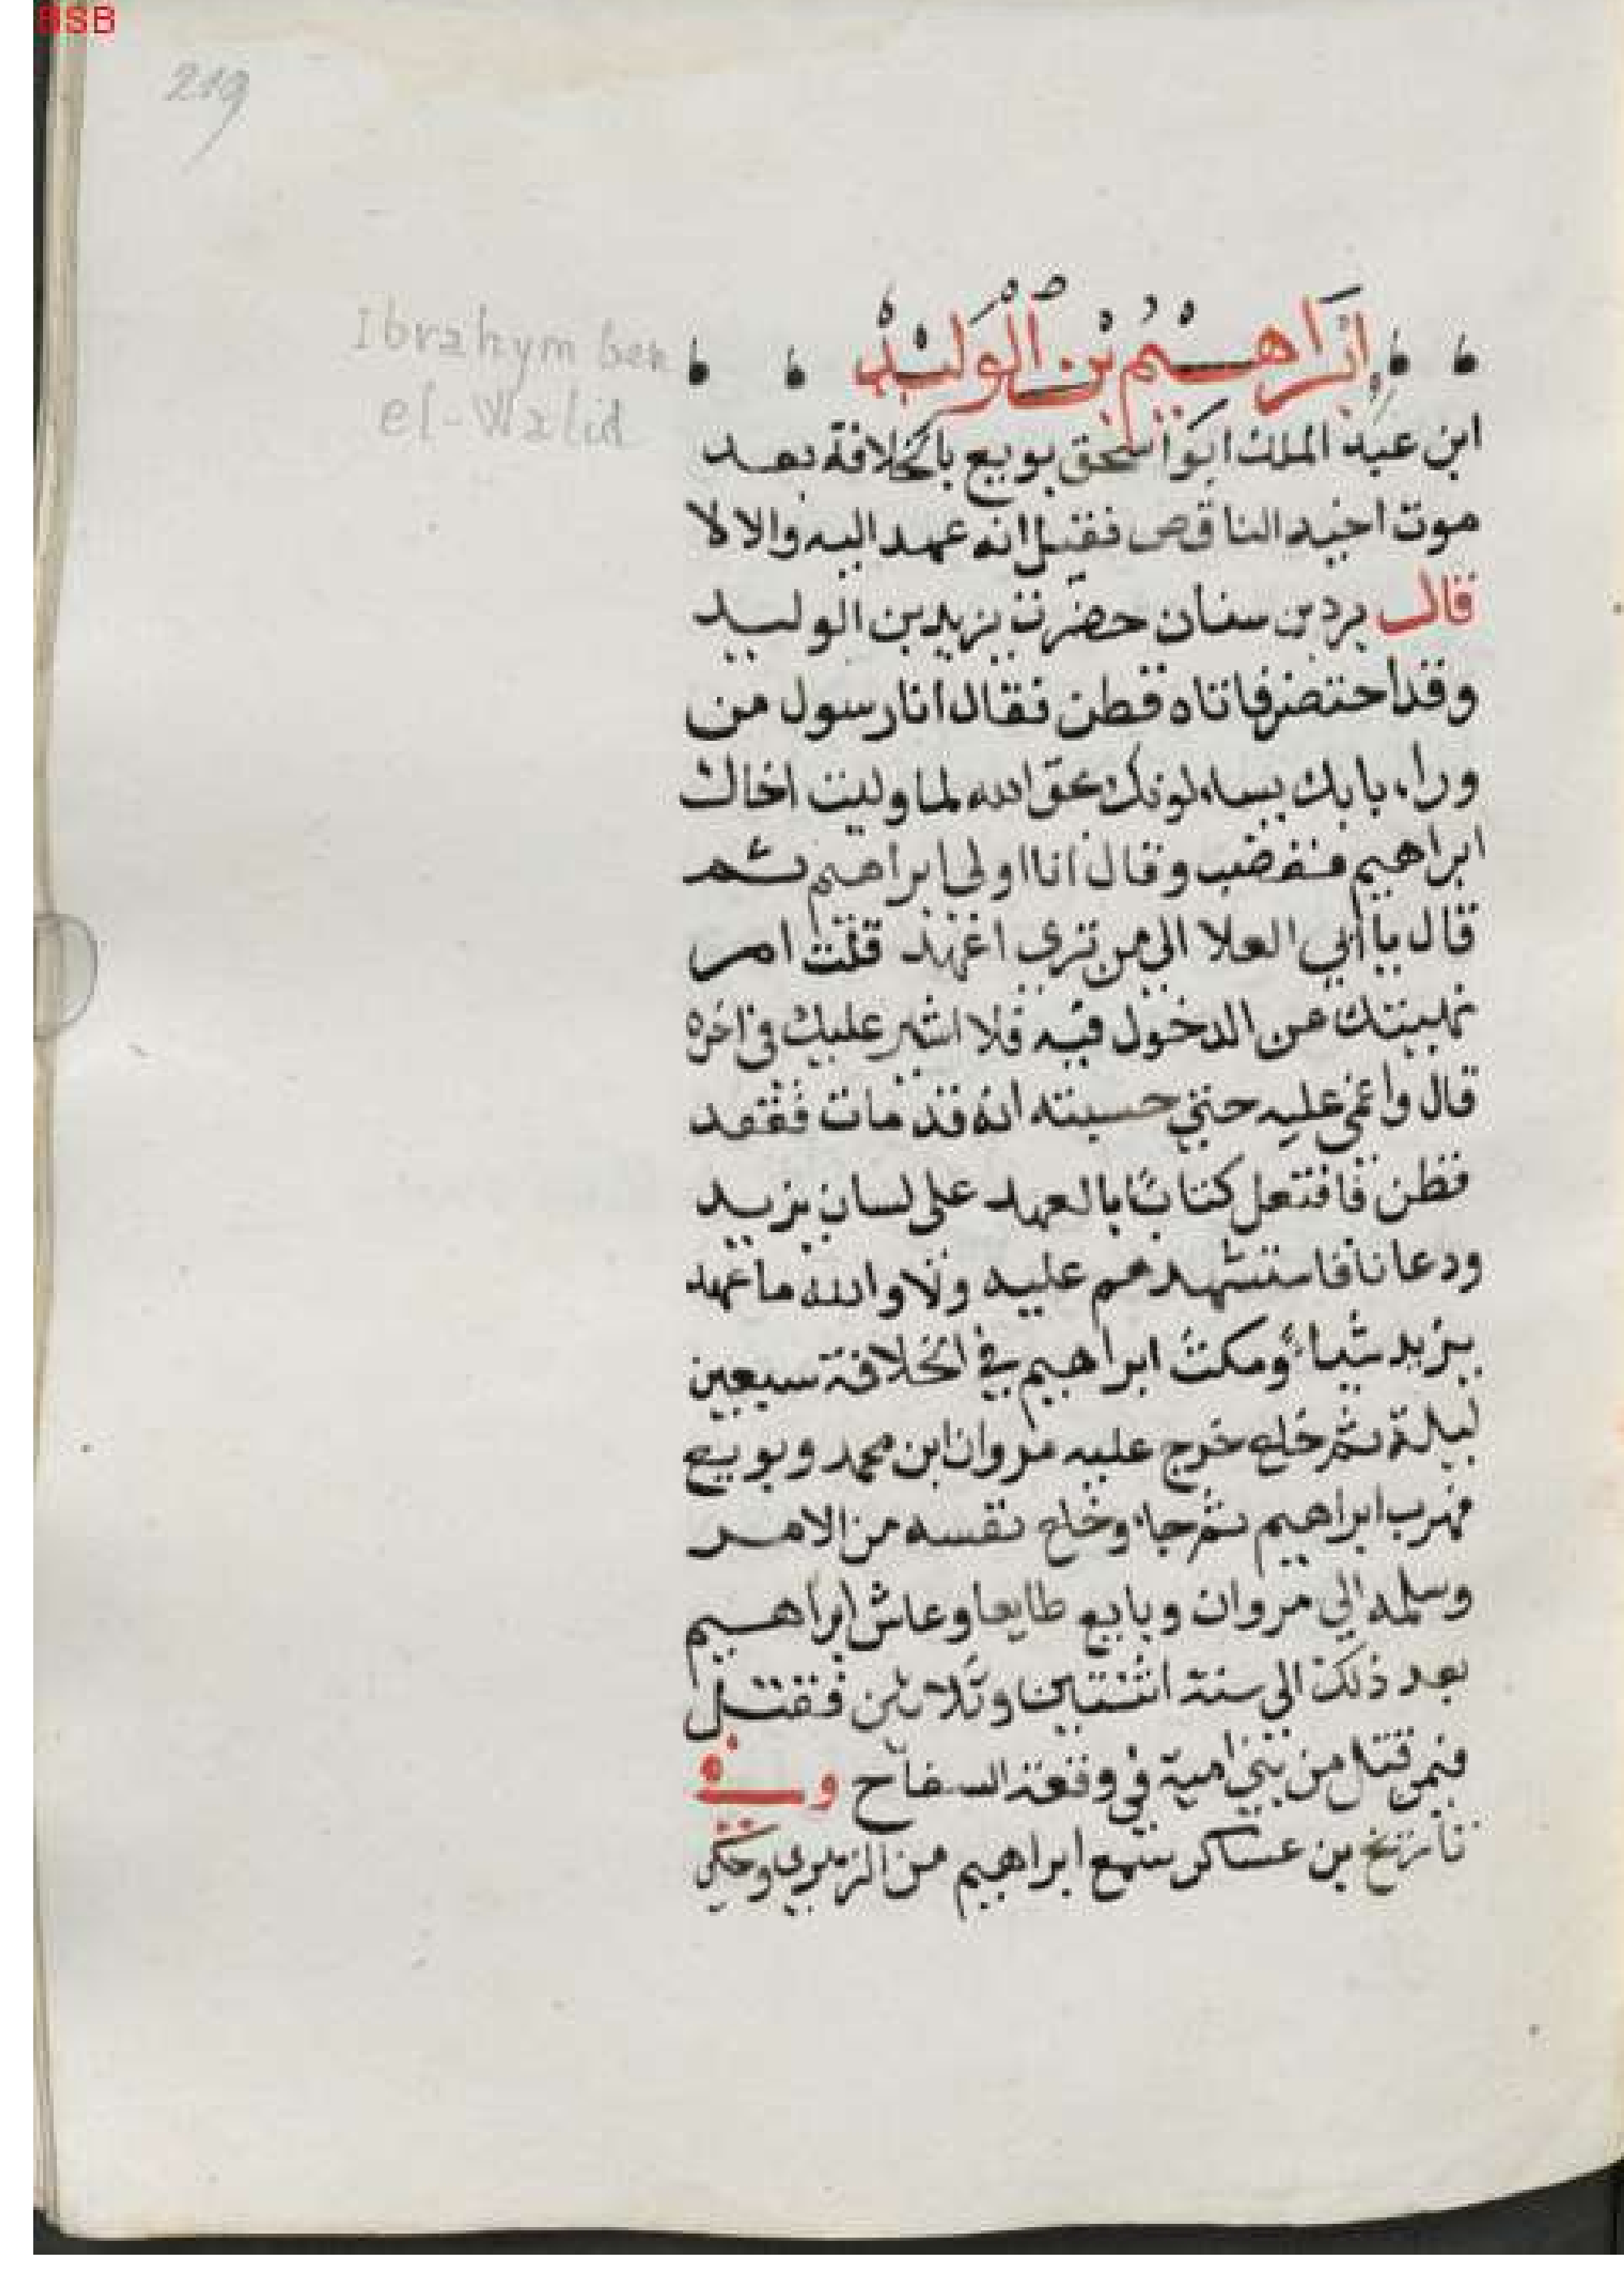 BSB
219
Ibrahym ben
el-Walid
إبراهيم بن الوليد
ابن عبد الملك ابو اسحق بويع بالخلافة بعد
موت اخيه الناقص فقيل انه عهد اليه والا لا
قال برد بن سنان حضرت يزيد بن الوليد
وقد احتضر فاتاه قطن فقال انا رسول من
وراء بابك يساءلونك بحق الله لما وليت اخاك
ابراهيم فغضب وقال انا اولي ابراهيم ثم
قال يا أبي العلا الي من تري اعهد قلت امر
نهيتك عن الدخول فيه فلا اشير عليك في اخره
قال واغمي عليه حتي حسبته انه قد مات فقعد
قطن فافتعل كتابًا بالعهد على لسان يزيد
ودعا ناسا فاستشهدهم عليه ولا والله ما عهد
يزيد شياء ومكث ابراهيم في الخلافة سبعين
ليلة ثم خلع خرج عليه مروان ابن محمد وبويع
فهرب ابراهيم ثم جاء وخلع نفسه من الامر
وسلمه الي مروان وبايع طايعا وعاش ابراهيم
بعد ذلك الى سنة اثنتين وثلاثين فقتل
فيمن قتل من بني امية في وقعة السفاح وفي
تاريخ بن عساكر سمع ابراهيم من الزهري وحكي